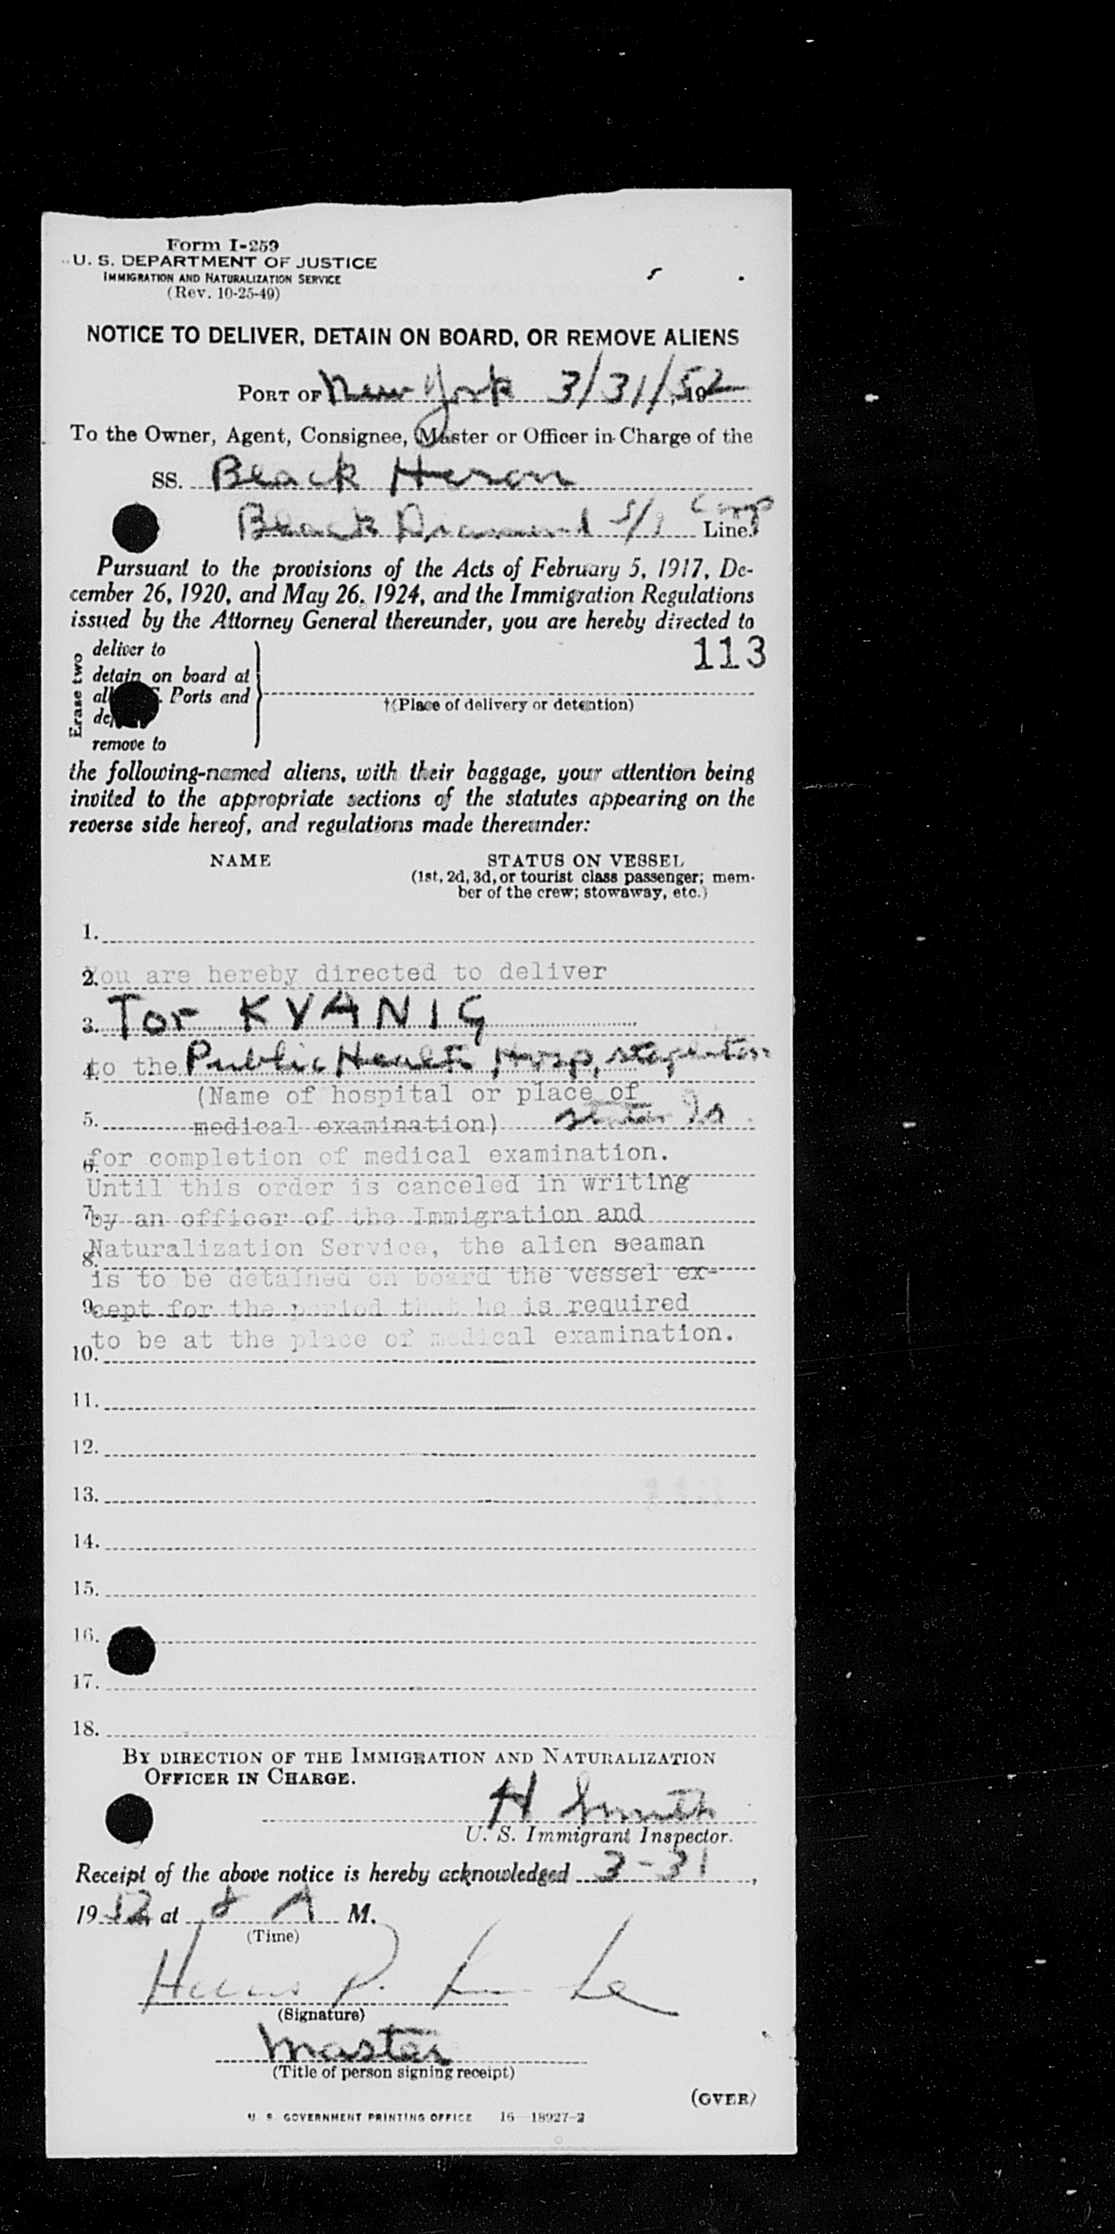 Form I-259
U. S. DEPARTMENT OF JUSTICE
IMMIGRATION AND NATURALIZATION SERVICE
(Rev. 10-25-49)
NOTICE TO DELIVER, DETAIN ON BOARD, OR REMOVE ALIENS
PORT OF New York 3/31/52, 19
To the Owner, Agent, Consignee, Master or Officer in Charge of the
SS. Black Heron
Black Diamond S/S Corp Line.
Pursuant to the provisions of the Acts of February 5, 1917, De-
cember 26, 1920, and May 26, 1924, and the Immigration Regulations
issued by the Attorney General thereunder, you are hereby directed to
113
Erase two
deliver to
detain on board at
all Ports and
remove to
†(Place of delivery or detention)
the following-named aliens, with their baggage, your attention being
invited to the appropriate sections of the statutes appearing on the
reverse side hereof, and regulations made thereunder:
NAME STATUS ON VESSEL
(1st, 2d, 3d, or tourist class passenger; mem-
ber of the crew; stowaway, etc.)
1.
2. You are hereby directed to deliver
3. Tor KVANIG
4. to the Public Health Hosp, Stapleton
(Name of hospital or place of
5. medical examination) Staten Is.
6. for completion of medical examination.
Until this order is canceled in writing
7. by an officer of the Immigration and
8. Naturalization Service, the alien seaman
is to be detained on board the vessel ex-
9. cept for the period that he is required
10. to be at the place of medical examination.
11.
12.
13.
14.
15.
16.
17.
18.
BY DIRECTION OF THE IMMIGRATION AND NATURALIZATION
OFFICER IN CHARGE.
H Smith
U. S. Immigrant Inspector.
Receipt of the above notice is hereby acknowledged 3-31,
1952 at 8 A M.
(Time)
(Signature)
Master
(Title of person signing receipt)
(OVER)
U. S. GOVERNMENT PRINTING OFFICE 16—18927-2